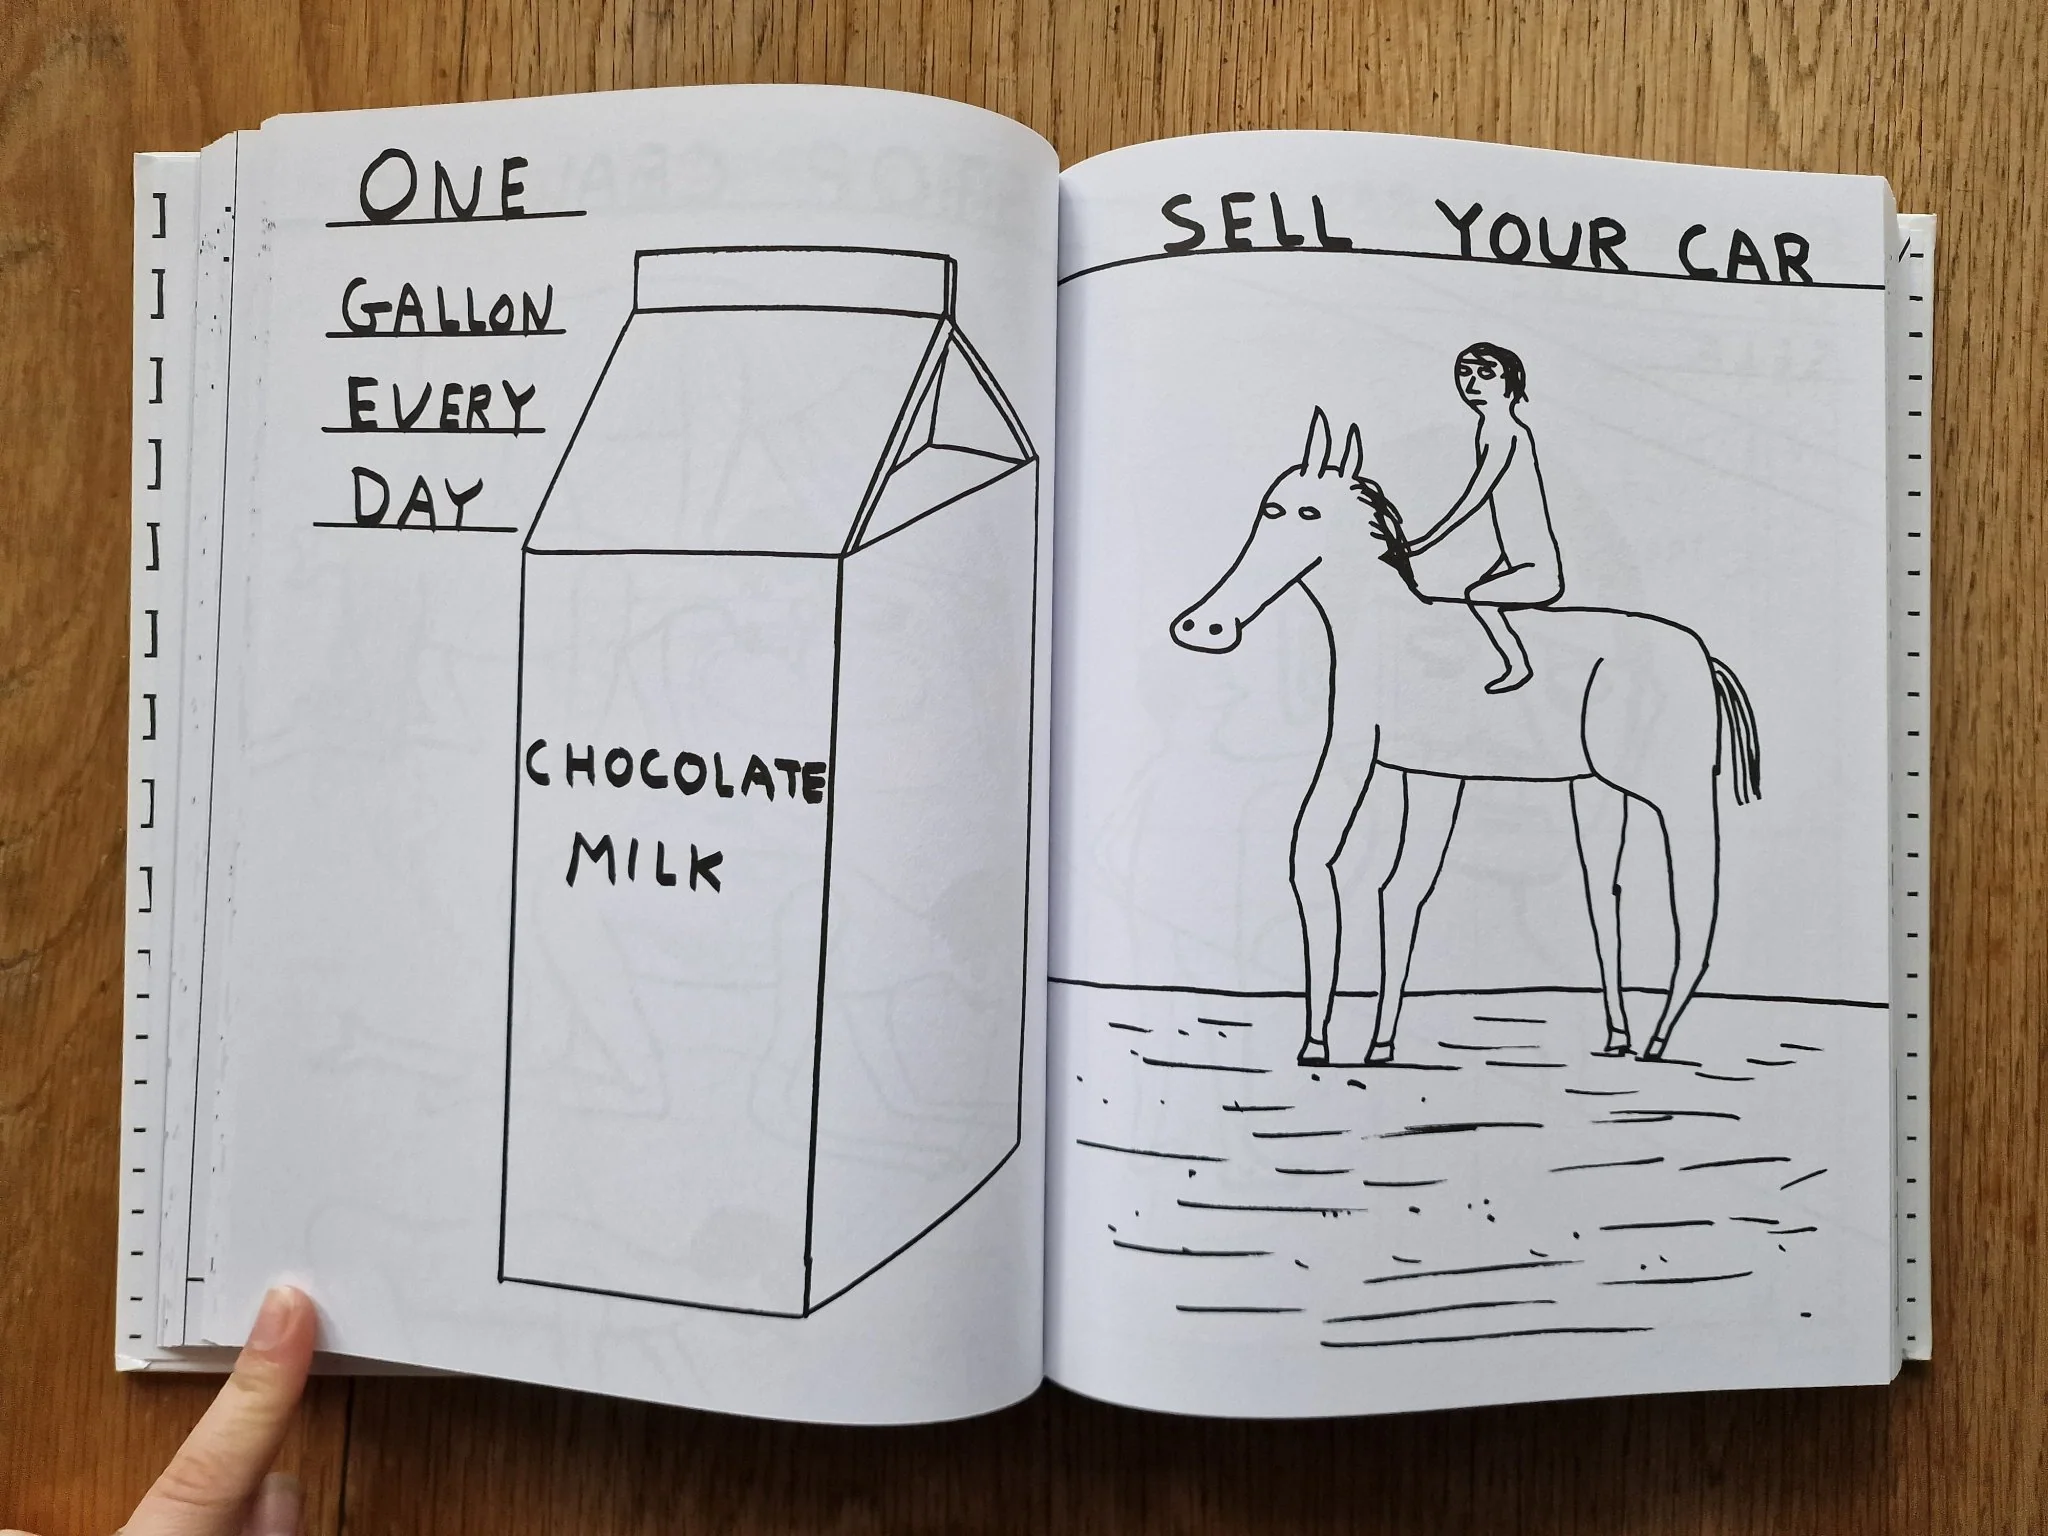 ONE
GALLON
EVERY
DAY
CHOCOLATE
MILK
SELL YOUR CAR